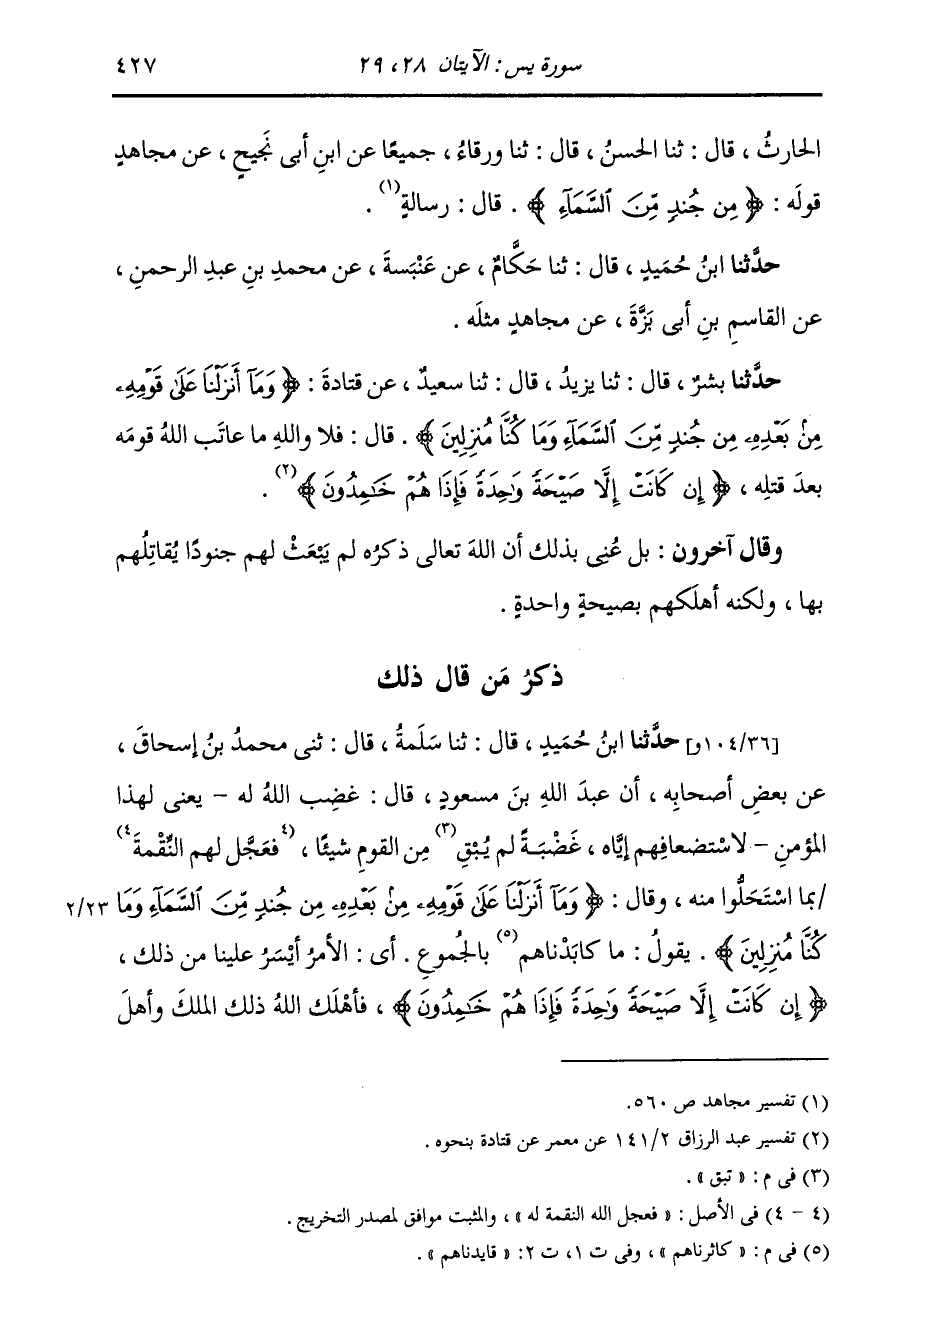 سورة يس : الآيتان ٢٨، ٢٩ ٤٢٧
الحارثُ ، قال : ثنا الحسنُ ، قال : ثنا ورقاءُ ، جميعًا عن ابنِ أبى نَجيحٍ ، عن مجاهدٍ
قولَه : ﴿ مِن جُندٍ مِّنَ ٱلسَّمَآءِ ﴾ . قال : رسالةٍ(١) .
حدَّثنا ابنُ حُمَيدٍ ، قال : ثنا حَكَّامٌ ، عن عَنْبَسةَ ، عن محمدِ بنِ عبدِ الرحمنِ ،
عن القاسمِ بنِ أبى بَزَّةَ ، عن مجاهدٍ مثلَه .
حدَّثنا بشرٌ ، قال : ثنا يزيدُ ، قال : ثنا سعيدٌ ، عن قتادةَ : ﴿ وَمَآ أَنزَلْنَا عَلَىٰ قَوْمِهِۦ
مِنۢ بَعْدِهِۦ مِن جُندٍ مِّنَ ٱلسَّمَآءِ وَمَا كُنَّا مُنزِلِينَ ﴾ . قال : فلا واللهِ ما عاتَب اللهُ قومَه
بعدَ قتلِه ، ﴿ إِن كَانَتْ إِلَّا صَيْحَةً وَٰحِدَةً فَإِذَا هُمْ خَـٰمِدُونَ ﴾(٢) .
وقال آخرون : بل عُنِى بذلك أن اللهَ تعالى ذكرُه لم يَبْعَثْ لهم جنودًا يُقاتِلُهم
بها ، ولكنه أهلَكهم بصيحةٍ واحدةٍ .
ذكرُ مَن قال ذلك
[١٠٤/٣٦و] حدَّثنا ابنُ حُمَيدٍ ، قال : ثنا سَلَمةُ ، قال : ثنى محمدُ بنُ إسحاقَ ،
عن بعضِ أصحابِه ، أن عبدَ اللهِ بنَ مسعودٍ ، قال : غضِب اللهُ له – يعنى لهذا
المؤمنِ – لاسْتضعافِهم إيَّاه ، غَضْبَةً لم يُبْقِ(٣) مِن القومِ شيئًا ، (٤فعَجَّل لهم النِّقْمةَ٤)
/بما اسْتَحَلُّوا منه ، وقال : ﴿ وَمَآ أَنزَلْنَا عَلَىٰ قَوْمِهِۦ مِنۢ بَعْدِهِۦ مِن جُندٍ مِّنَ ٱلسَّمَآءِ وَمَا ٢/٢٣
كُنَّا مُنزِلِينَ ﴾ . يقولُ : ما كابَدْناهم(٥) بالجُموعِ . أى : الأمرُ أيْسَرُ علينا من ذلك ،
﴿ إِن كَانَتْ إِلَّا صَيْحَةً وَٰحِدَةً فَإِذَا هُمْ خَـٰمِدُونَ ﴾ ، فأهْلَك اللهُ ذلك الملكَ وأهلَ
(١) تفسير مجاهد ص ٥٦٠.
(٢) تفسير عبد الرزاق ١٤١/٢ عن معمر عن قتادة بنحوه .
(٣) فى م : « تبق » .
(٤ – ٤) فى الأصل : « فعجل الله النقمة له » ، والمثبت موافق لمصدر التخريج .
(٥) فى م : « كاثرناهم » ، وفى ت ١، ت ٢: « قايدناهم » .